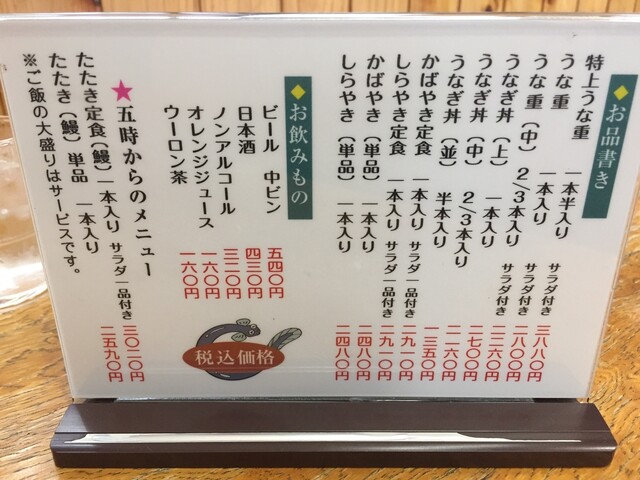 ◆お品書き
特上うな重 一本半入り サラダ付き 三八八〇円
うな重 一本入り サラダ付き 二八〇〇円
うな重(中) 2/3本入り サラダ付き 二二六〇円
うなぎ丼(上) 一本入り 二七〇〇円
うなぎ丼(中) 2/3本入り 二一六〇円
うなぎ丼(並) 半本入り 一三五〇円
かばやき定食 一本入り サラダ一品付き 二九一〇円
しらやき定食 一本入り サラダ一品付き 二九一〇円
かばやき(単品) 一本入り 二四八〇円
しらやき(単品) 一本入り 二四八〇円
◆お飲みもの
ビール 中ビン 五四〇円
日本酒 四三〇円
ノンアルコール 三二〇円
オレンジジュース 一六〇円
ウーロン茶 一六〇円
税込価格
★五時からのメニュー
たたき定食(鰻)一本入り サラダ一品付き 三〇二〇円
たたき(鰻)単品 一本入り 二五九〇円
※ご飯の大盛りはサービスです。